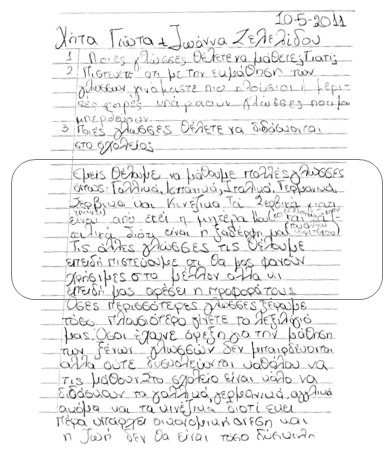 10-5-2011
Χήτα Γιώτα + Ιωάννα Ζελελίδου
1 Ποιες γλώσσες θέλετε να μάθετε; Γιατί;
2 Πιστευετε οτι με την εκμάθηση των
γλωσσών γινομαστε πιο πλούσιοι ή μερι-
κές φορές υπάρχουν γλώσσες που μας
μπερδεύουν
3 Ποιες γλώσσες θέλετε να διδάσκονται
στο σχολείο;
Εμείς θέλουμε να μάθουμε πολλές γλώσσες
όπως: Γαλλικά, Ισπανικά, Ιταλικά, Γερμανικά,
Σερβικα και Κινέζικα. Τα Σερβικά γιατι
είναι από εκεί η μητέρα μου
διότι είναι η ξαδέρφη μου
Τις άλλες γλώσσες τις θέλουμε
επειδή πιστεύουμε οτι θα μας φανούν
χρήσιμες στο μέλλον αλλα κι
επειδή μας αρέσει η προφορά τους
Όσες περισσότερες γλώσσες ξέρουμε
τόσο πλουσιότερο γίνετε το λεξιλόγιό
μας. Οσοι έχουνε όρεξη για την μάθηση
των ξένων γλωσσών δεν μπερδεύονται
αλλα ούτε δυσκολεύονται καθόλου να
τις μάθουν. Στο σχολείο είναι καλο να
διδάσκουν τα γαλλικά, γερμανικά, αγγλικά
ακόμα και τα κινέζικα διοτί εκει
πέρα υπάρχει οικονομικη ανεση και
η ζωή δεν θα είναι τοσο δύσκολη